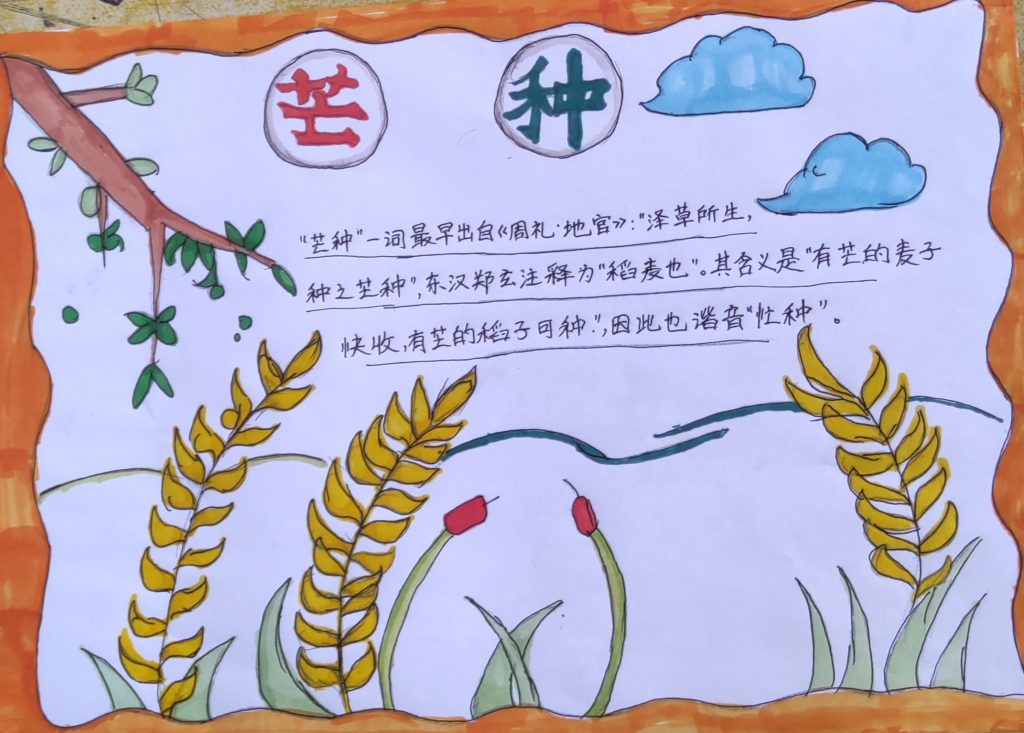 芒种
“芒种”一词最早出自《周礼·地官》：“泽草所生，
种之芒种”，东汉郑玄注释为“稻麦也”。其含义是“有芒的麦子
快收，有芒的稻子可种.”，因此也谐音“忙种”。